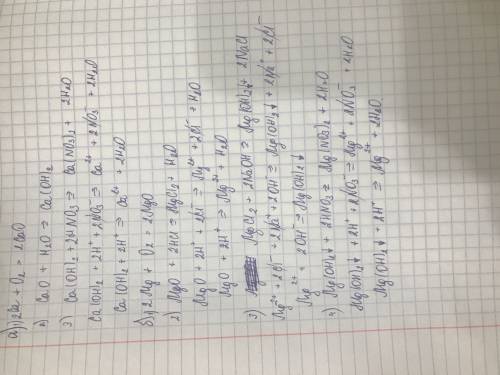 а) 1) 2Ca + O₂ = 2CaO
2) CaO + H₂O ⇒ Ca(OH)₂
3) Ca(OH)₂ + 2HNO₃ ⇒ Ca(NO₃)₂ + 2H₂O
Ca(OH)₂ + 2H⁺ + 2NO₃⁻ ⇒ Ca²⁺ + 2NO₃⁻ + 2H₂O
Ca(OH)₂ + 2H⁺ ⇒ Ca²⁺ + 2H₂O
б) 1) 2Mg + O₂ = 2MgO
2) MgO + 2HCl ⇒ MgCl₂ + H₂O
MgO + 2H⁺ + 2Cl⁻ ⇒ Mg²⁺ + 2Cl⁻ + H₂O
MgO + 2H⁺ ⇒ Mg²⁺ + H₂O
3) MgCl₂ + 2NaOH ⇒ Mg(OH)₂↓ + 2NaCl
Mg²⁺ + 2Cl⁻ + 2Na⁺ + 2OH⁻ ⇒ Mg(OH)₂↓ + 2Na⁺ + 2Cl⁻
Mg²⁺ + 2OH⁻ ⇒ Mg(OH)₂↓
4) Mg(OH)₂↓ + 2HNO₃ ⇒ Mg(NO₃)₂ + 2H₂O
Mg(OH)₂↓ + 2H⁺ + 2NO₃⁻ ⇒ Mg²⁺ + 2NO₃⁻ + 2H₂O
Mg(OH)₂↓ + 2H⁺ ⇒ Mg²⁺ + 2H₂O